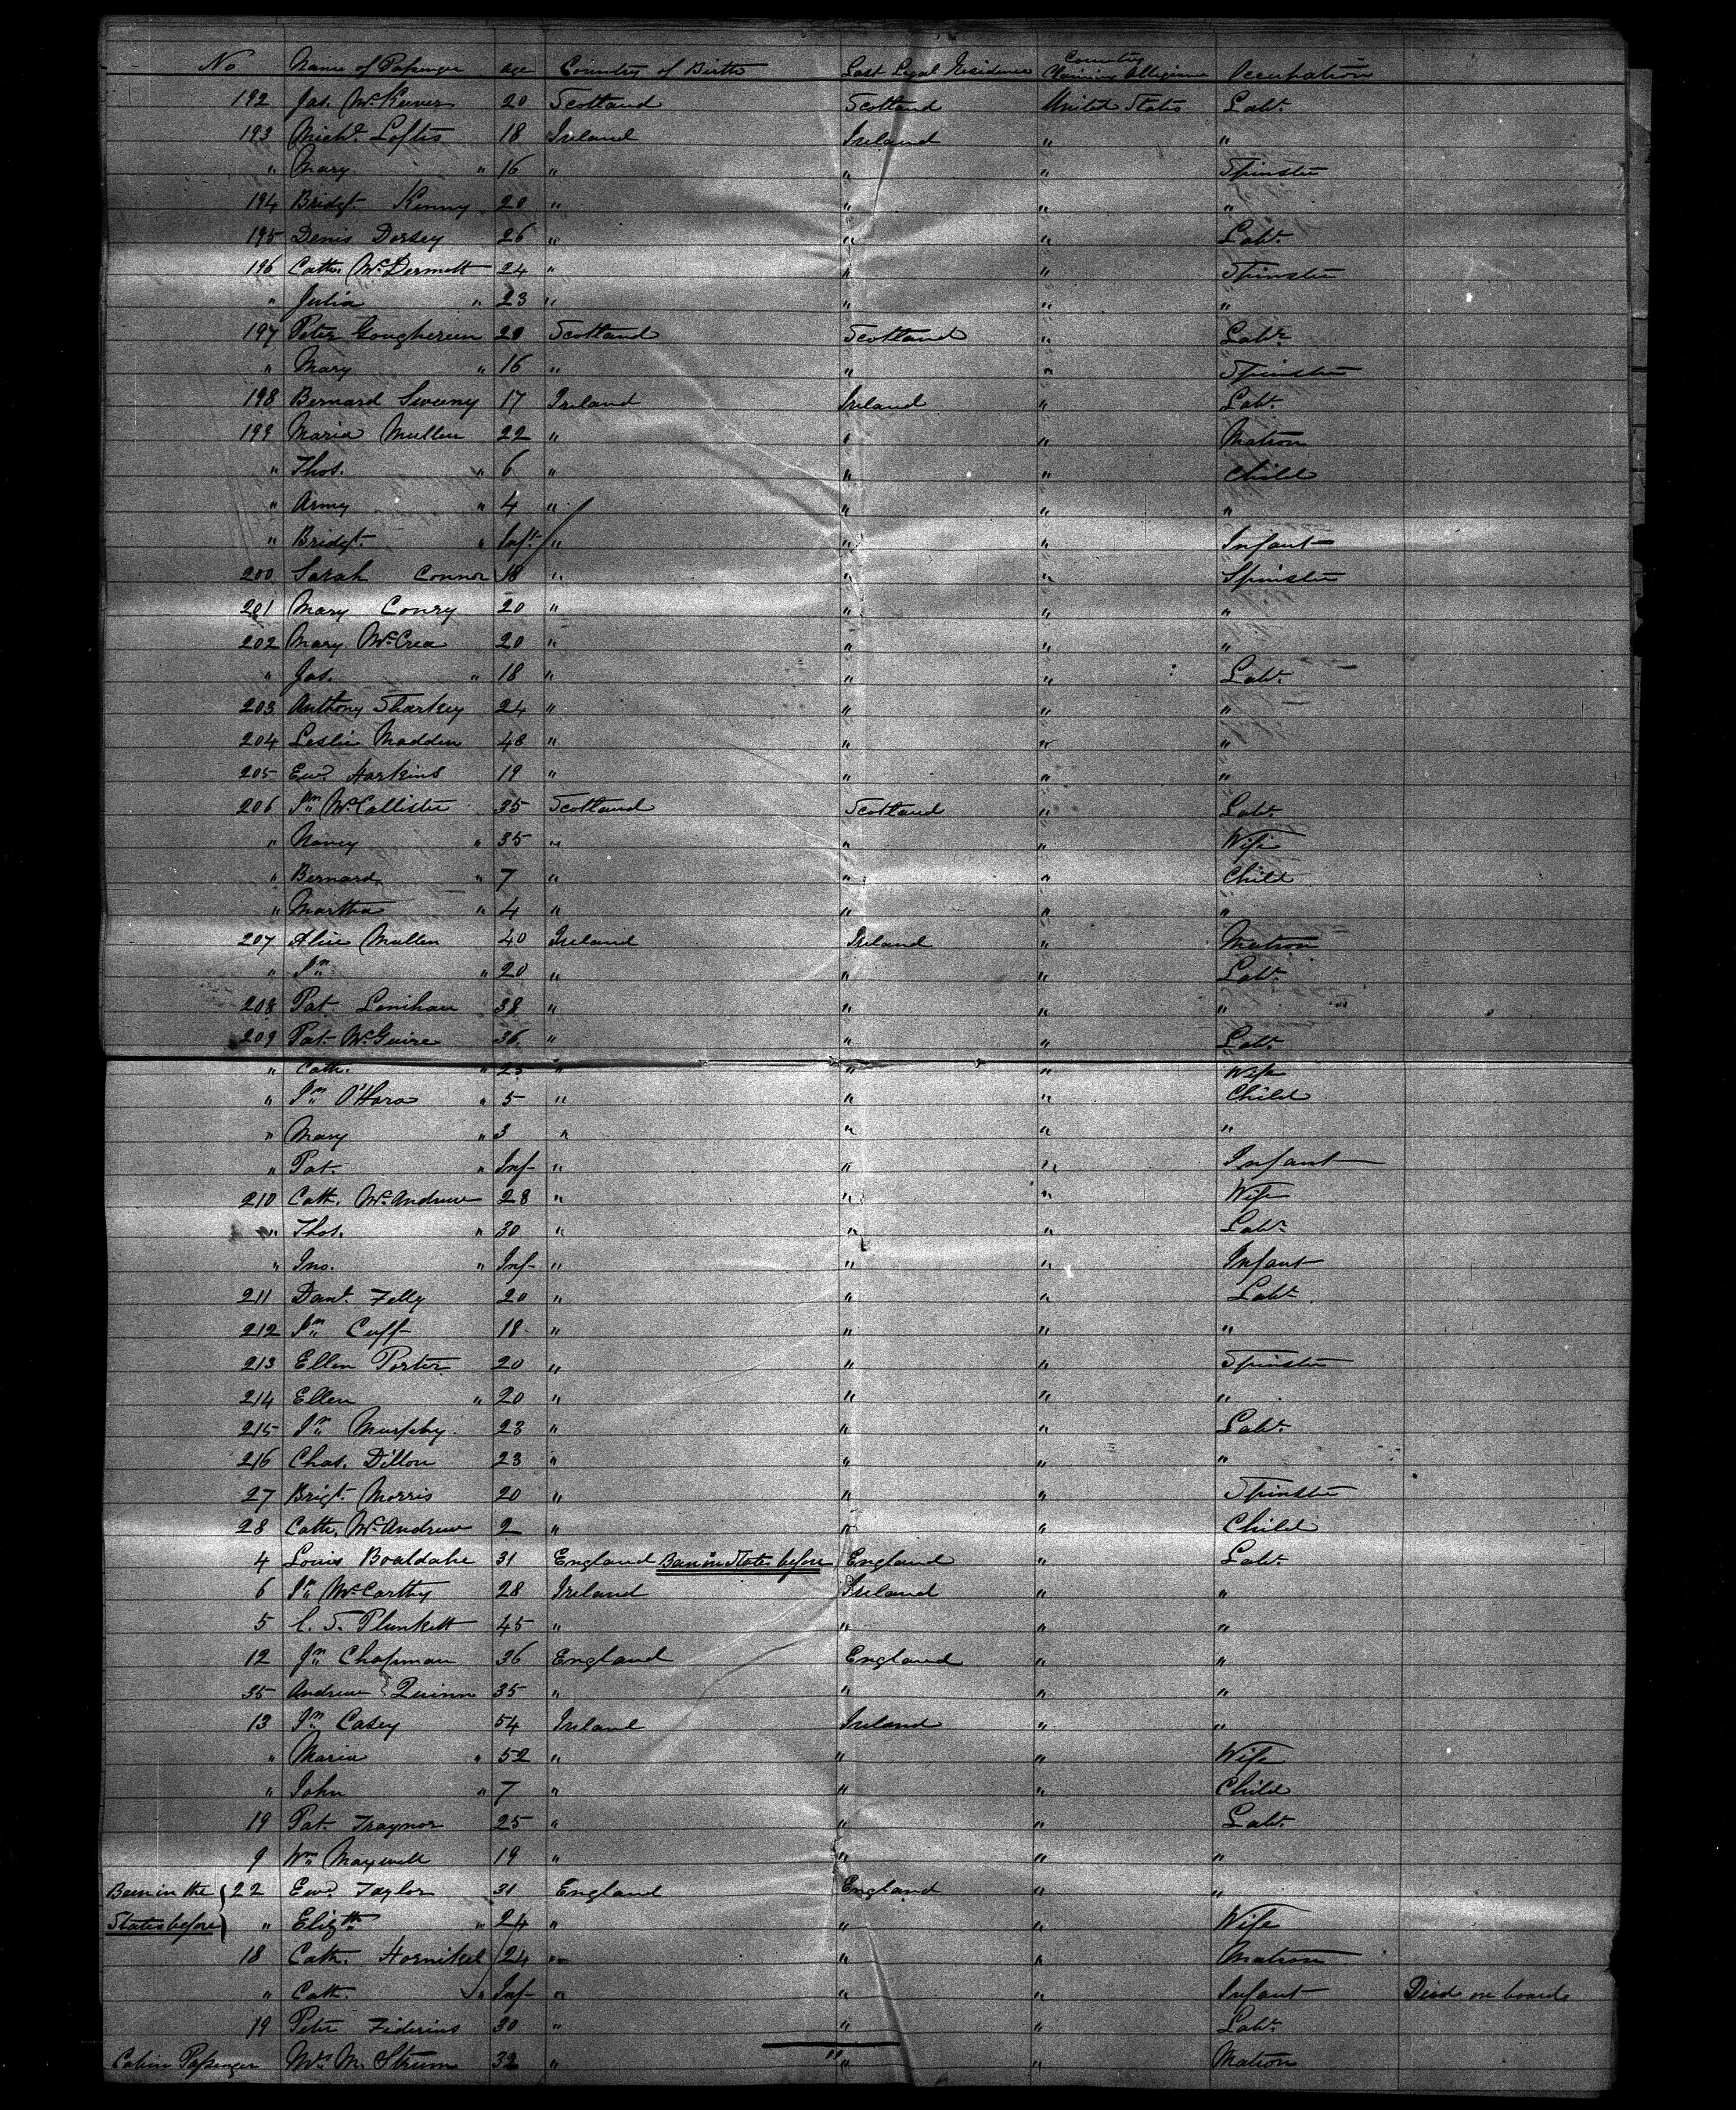 No Name of Passenger age Country of Birth Last Legal Residence Country Claiming Allegiance Occupation
192 Jas. McKeever 20 Scotland Scotland United States Labr.
193 Michl. Loftis 18 Ireland Ireland " "
" Mary " 16 " " " Spinster
194 Bridgt. Kenny 20 " " " "
195 Denis Dorsey 26 " " " Labr.
196 Cathe. McDermott 24 " " " Spinster
" Julia " 23 " " " "
197 Peter 20 Scotland Scotland " Labr.
" Mary " 16 " " " Spinster
198 Bernard Sweeny 17 Ireland Ireland " Labr.
199 Maria Mullen 22 " " " Matron
" Thos. " 6 " " " Child
" " 4 " " " "
" Bridgt. " Inft. " " " Infant
200 Sarah Connor 18 " " " Spinster
201 Mary Conry 20 " " " "
202 Mary McCrea 20 " " " "
" Jas. " 18 " " " Labr.
203 Anthony Sharkey 24 " " " "
204 Leslie Madden 48 " " " "
205 Ewd. Harkins 19 " " " "
206 Jn. McCallister 35 Scotland Scotland " Labr.
" Nancy " 35 " " " Wife
" Bernard " 7 " " " Child
" Martha " 4 " " " "
207 Alice Mullen 40 Ireland Ireland " Matron
" Jn. " 20 " " " Labr.
208 Pat Lenihan 38 " " " "
209 Pat. McGuire 36 " " " Labr.
" Cath. " 25 " " " Wife
" Jn. O'Hara " 5 " " " Child
" Mary " 3 " " " "
" Pat. " Inf " " " Infant
210 Cath. McAndrew 28 " " " Wife
" Thos. " 30 " " " Labr.
" Jno. " Inf " " " Infant
211 Danl. 20 " " " Labr
212 Jn. Cuff 18 " " " "
213 Ellen Porter 20 " " " Spinster
214 Ellen " 20 " " " "
215 Jn. Murphy 23 " " " Labr.
216 Chas. Dillon 23 " " " "
27 Brigt. Morris 20 " " " Spinster
28 Cath. McAndrew 2 " " " Child
4 Louis 31 England Been in States before England " Labr
6 Jn. McCarthy 28 Ireland Ireland " "
5 C. S. Plunkett 45 " " " "
12 Jn. Chapman 36 England England " "
35 Andrew Quinn 35 " " " "
13 Jn. Casey 54 Ireland Ireland " "
" Maria " 52 " " " Wife
" John " 7 " " " Child
19 Pat. Traynor 25 " " " Labr.
9 Wm. Maxwell 19 " " " "
Been in the 22 Ewd. Taylor 31 England England " "
States before " Elizth. " 24 " " " Wife
18 Cath. Hornikel 24 " " " Matron
" Cath. " Inf " " " Infant Died on board
19 Peter 30 " " " Labr.
Cabin Passenger Mrs. M. Strum 32 " " " Matron